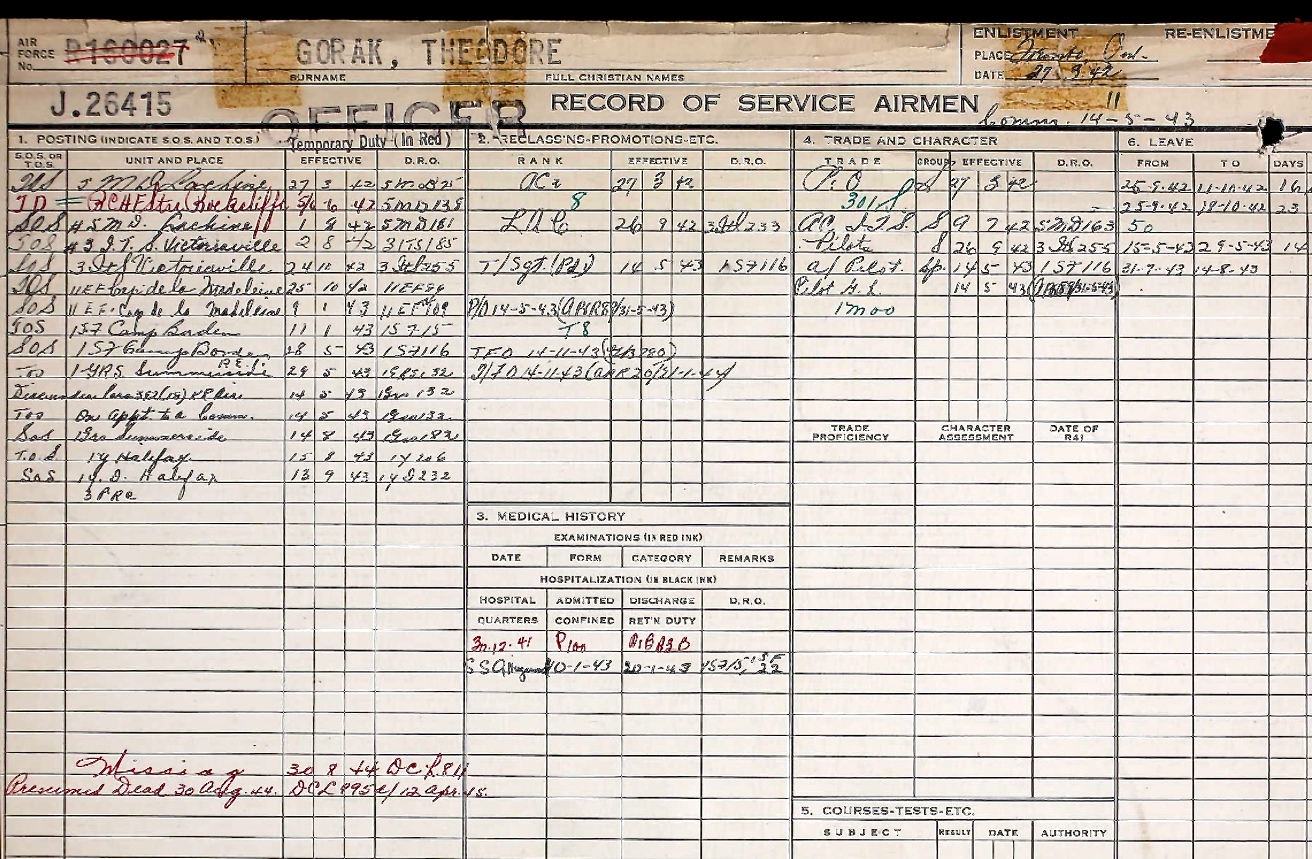 AIR FORCE No. R160027
GORAK, THEODORE
SURNAME FULL CHRISTIAN NAMES
ENLISTMENT RE-ENLISTME
PLACE Toronto Ont.
DATE 27 3 42
J.26415
OFFICER
RECORD OF SERVICE AIRMEN
Comm. 14-5-43
1. POSTING (INDICATE S.O.S. AND T.O.S.) Temporary Duty (In Red)
S.O.S. OR T.O.S. UNIT AND PLACE EFFECTIVE D.R.O.
TOS 5 M.D. Lachine 27 3 42
TD RCAF Stn Rockcliffe 5/6 6 42
SOS #5 M.D. Lachine 1 8 42 5MD181
TOS #3 I.T.S. Victoriaville 2 8 42 3ITS185
SOS 3 ITS Victoriaville 24 10 42 3 ITS 255
TOS 11 EF Cap de la Madeleine 25 10 42 11EF84
SOS 11 EF Cap de la Madeleine 9 1 43 11EF09
TOS 1SF Camp Borden 11 1 43 1SF15
SOS 1SF Camp Borden 28 5 43 1SF116
TOS 1 GRS Summerside P.E.I. 29 5 43 1GRS132
14 5 43 132
TOS On Appt to a Comm. 14 5 43 132
SOS 1GRS Summerside 14 8 43 183
T.O.S 1Y Halifax 15 8 43 1Y206
SOS 1Y.D. Halifax 13 9 43 1YD232
3 PRC
Missing 30 8 44 DCL 811
Presumed Dead 30 Aug. 44. DCL 995 d/12 Apr. 45.
2. RECLASS'NS-PROMOTIONS-ETC.
RANK EFFECTIVE D.R.O.
AC2 27 3 42
8
LAC 26 9 42 233
T/Sgt (Pd) 14 5 43 1SF116
P/O 14-5-43 (APRR8/31-5-43)
T8
TFO 14-11-43
T/FO 14-11-43 (APR 20/31-1-44)
3. MEDICAL HISTORY
EXAMINATIONS (IN RED INK)
DATE FORM CATEGORY REMARKS
HOSPITALIZATION (IN BLACK INK)
HOSPITAL ADMITTED DISCHARGE D.R.O.
QUARTERS CONFINED RET'N DUTY
31.12.41 P100 A1B A3B
10-1-43 20-1-43
4. TRADE AND CHARACTER
TRADE GROUP EFFECTIVE D.R.O.
27 3 42
301
AC I.T.S. S 9 7 42 5MD163
50
Pilot S 26 9 42 3 ITS 255
a/Pilot Sp. 14 5 43 1SF116
Pilot G.L. 14 5 43
1m00
TRADE PROFICIENCY CHARACTER ASSESSMENT DATE OF R41
5. COURSES-TESTS-ETC.
SUBJECT RESULT DATE AUTHORITY
6. LEAVE
FROM TO DAYS
25-9-42 11-10-42 16
25-9-42 18-10-42 23
15-5-43 29-5-43 14
31-7-43 14-8-43